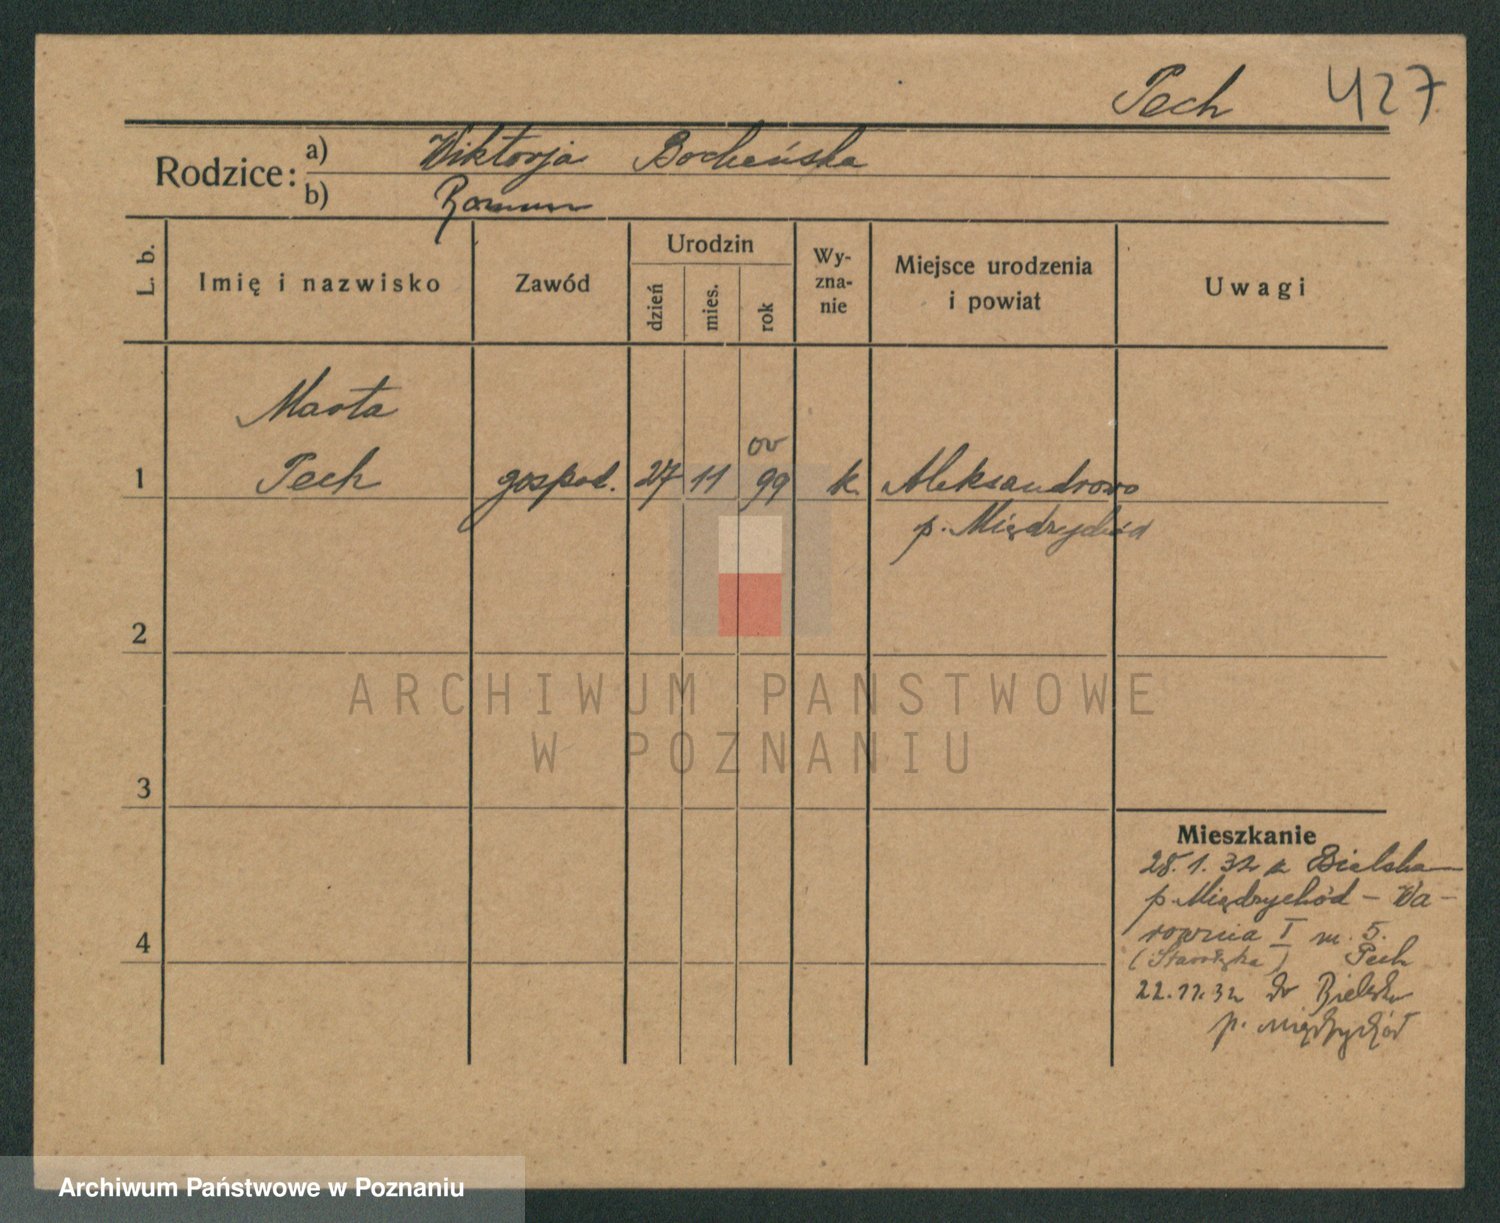 Pech 427
Rodzice: a) Wiktorja Bocheńska
b) Roman
L. b. Imię i nazwisko Zawód Urodzin dzień mies. rok Wy-zna-nie Miejsce urodzenia i powiat Uwagi
Marta
ov
1 Pech gospod. 27 11 99 k. Aleksandrowo
p. Międzychód
2
ARCHIWUM PAŃSTWOWE
W POZNANIU
3
Mieszkanie
28.1.32 z Bielska
p. Międzychód - Wa-
4 rownia I m. 5.
Pech
22.11.32 do Bielska
p. Międzychód
Archiwum Państwowe w Poznaniu